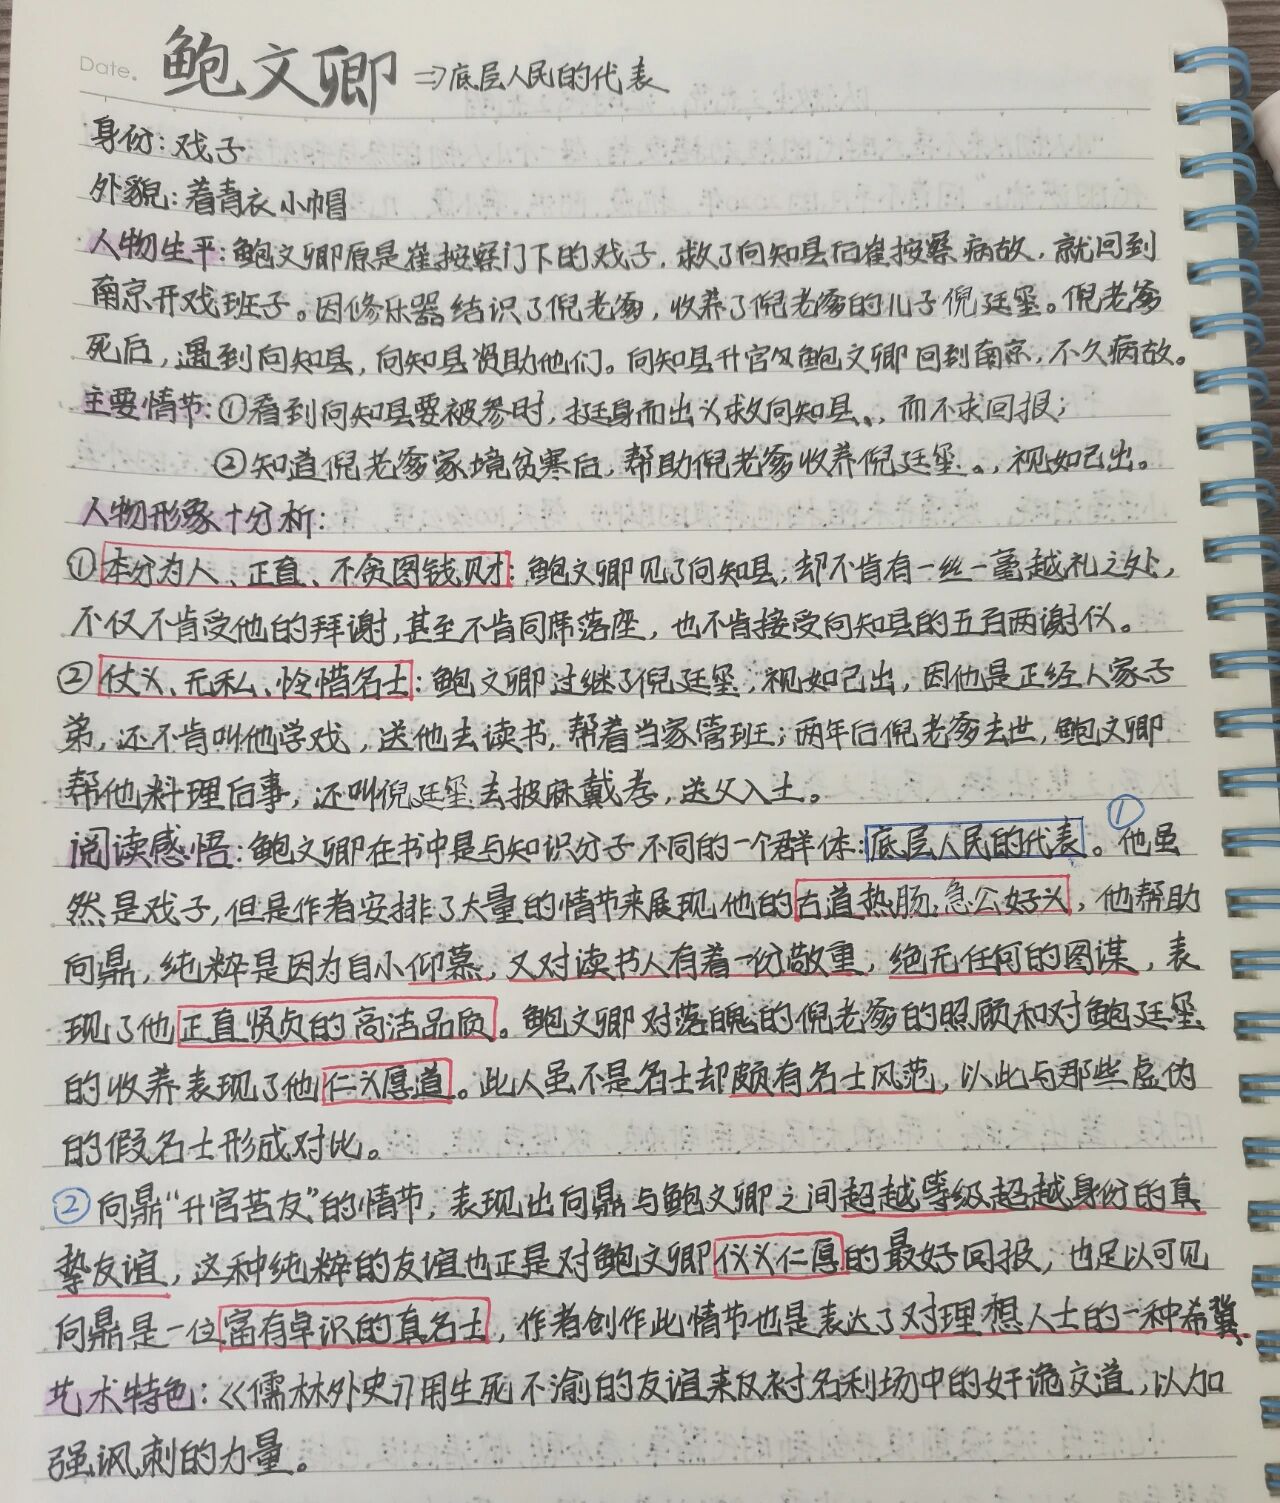 Date. 鲍文卿 ⇒底层人民的代表
身份：戏子
外貌：着青衣小帽
人物生平：鲍文卿原是崔按察门下的戏子，救了向知县后崔按察病故，就回到
南京开戏班子。因修乐器结识了倪老爹，收养了倪老爹的儿子倪廷玺。倪老爹
死后，遇到向知县，向知县资助他们。向知县升官后鲍文卿回到南京，不久病故。
主要情节：①看到向知县要被参时，挺身而出义救向知县、，而不求回报；
②知道倪老爹家境贫寒后，帮助倪老爹收养倪廷玺。，视如己出。
人物形象十分析：
①本分为人、正直、不贪图钱财：鲍文卿见了向知县，却不肯有一丝一毫越礼之处，
不仅不肯受他的拜谢，甚至不肯同席落座，也不肯接受向知县的五百两谢仪。
②仗义、无私、怜惜名士：鲍文卿过继了倪廷玺，视如己出，因他是正经人家子
弟，还不肯叫他学戏，送他去读书，帮着当家管班；两年后倪老爹去世，鲍文卿
帮他料理后事，还叫倪廷玺去披麻戴孝，送父入土。
阅读感悟：鲍文卿在书中是与知识分子不同的一个群体：底层人民的代表。①他虽
然是戏子，但是作者安排了大量的情节来展现他的古道热肠，急公好义，他帮助
向鼎，纯粹是因为自小仰慕，又对读书人有着一份敬重，绝无任何的图谋，表
现了他正直贤贞的高洁品质。鲍文卿对落魄的倪老爹的照顾和对鲍廷玺
的收养表现了他仁义厚道。此人虽不是名士却颇有名士风范，以此与那些虚伪
的假名士形成对比。
②向鼎“升官苦友”的情节，表现出向鼎与鲍文卿之间超越等级超越身份的真
挚友谊，这种纯粹的友谊也正是对鲍文卿仪义仁厚的最好回报，也足以可见
向鼎是一位富有卓识的真名士，作者创作此情节也是表达了对理想人士的一种希冀
艺术特色：《儒林外史》用生死不渝的友谊来反衬名利场中的奸诡交道，以加
强讽刺的力量。